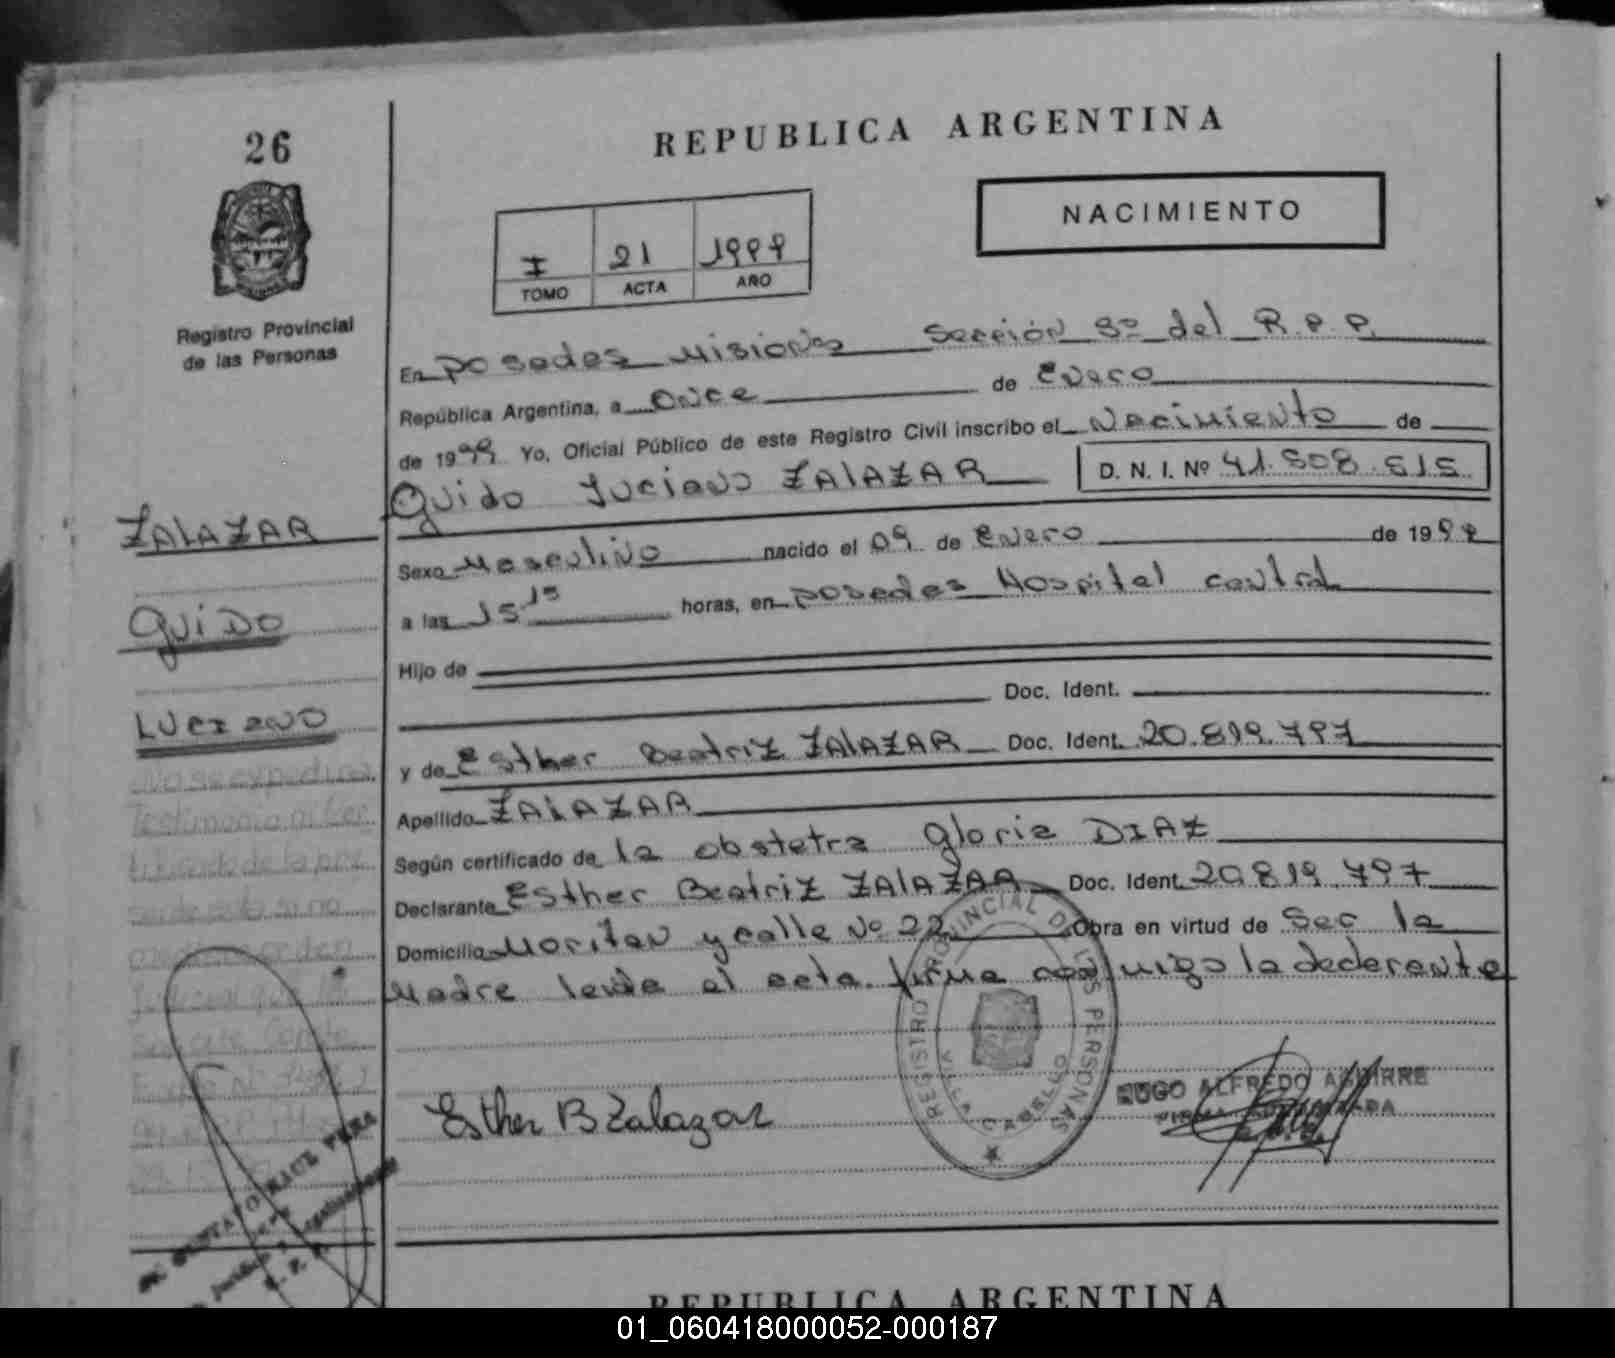 26
REPUBLICA ARGENTINA
NACIMIENTO
I 21 1999
TOMO ACTA AÑO
Registro Provincial
de las Personas
En Posadas Misiones Sección 3º del R.P.P.
República Argentina, a once de Enero
de 1999 Yo, Oficial Público de este Registro Civil inscribo el Nacimiento de
Guido Luciano ZALAZAR D. N. I. Nº 41.508.515
ZALAZAR
GUIDO
LUCIANO
Sexo Masculino nacido el 09 de Enero de 1999
a las 15 15 horas, en Posadas Hospital central
Hijo de
Doc. Ident.
y de Esther Beatriz ZALAZAR Doc. Ident. 20.819.797
Apellido ZALAZAR
Según certificado de la obstetra Gloria DIAZ
Declarante Esther Beatriz ZALAZAR Doc. Ident. 20.819.797
Domicilio Moritan y calle Nº 22 Obra en virtud de Ser la
Madre leida el acta firma conmigo la declarante
No se expedirá
Testimonio ni Cer
tificado de la pre
sente acta si no
Judicial que
REGISTRO PROVINCIAL DE LAS PERSONAS
VILLA CABELLO
Esther B Zalazar
HUGO ALFREDO AGUIRRE
FIRMA AUTORIZADA
REPUBLICA ARGENTINA
01_060418000052-000187